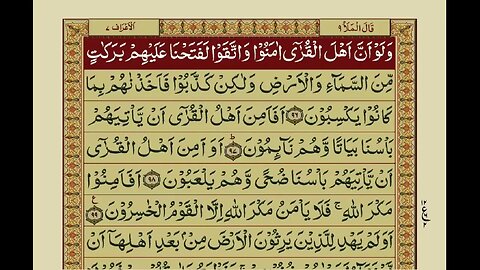 قَالَ الْمَلَاُ ۹
اَلْاَعْرَاف ۷
وَلَوْ اَنَّ اَهْلَ الْقُرٰٓى اٰمَنُوْا وَاتَّقَوْا لَفَتَحْنَا عَلَيْهِمْ بَرَكٰتٍ
مِّنَ السَّمَآءِ وَالْاَرْضِ وَلٰكِنْ كَذَّبُوْا فَاَخَذْنٰهُمْ بِمَا
كَانُوْا يَكْسِبُوْنَ ﴿۹۶﴾ اَفَاَمِنَ اَهْلُ الْقُرٰٓى اَنْ يَّاْتِيَهُمْ
بَاْسُنَا بَيَاتًا وَّهُمْ نَآئِمُوْنَ ﴿۹۷﴾ؕ اَوَاَمِنَ اَهْلُ الْقُرٰٓى
اَنْ يَّاْتِيَهُمْ بَاْسُنَا ضُحًى وَّهُمْ يَلْعَبُوْنَ ﴿۹۸﴾ اَفَاَمِنُوْا
مَكْرَ اللّٰهِ ۚ فَلَا يَاْمَنُ مَكْرَ اللّٰهِ اِلَّا الْقَوْمُ الْخٰسِرُوْنَ ﴿۹۹﴾ع
اَوَلَمْ يَهْدِ لِلَّذِيْنَ يَرِثُوْنَ الْاَرْضَ مِنْۢ بَعْدِ اَهْلِهَاۤ اَنْ